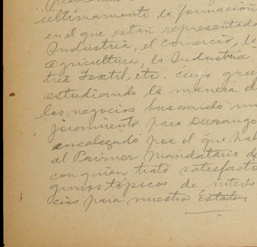 ultimamente la formación
en el que están representado
Industria, el comercio, la
agricultura, la Industria
tria Textil, etc. cuyo gru
estudiando la manera d
los negocios buscando m
joramiento para Durango
encabezado por el que hab
al Primer Mandatario d
con quien trato satisfacto
gunos tópicos de interé
cios para nuestro Estado.